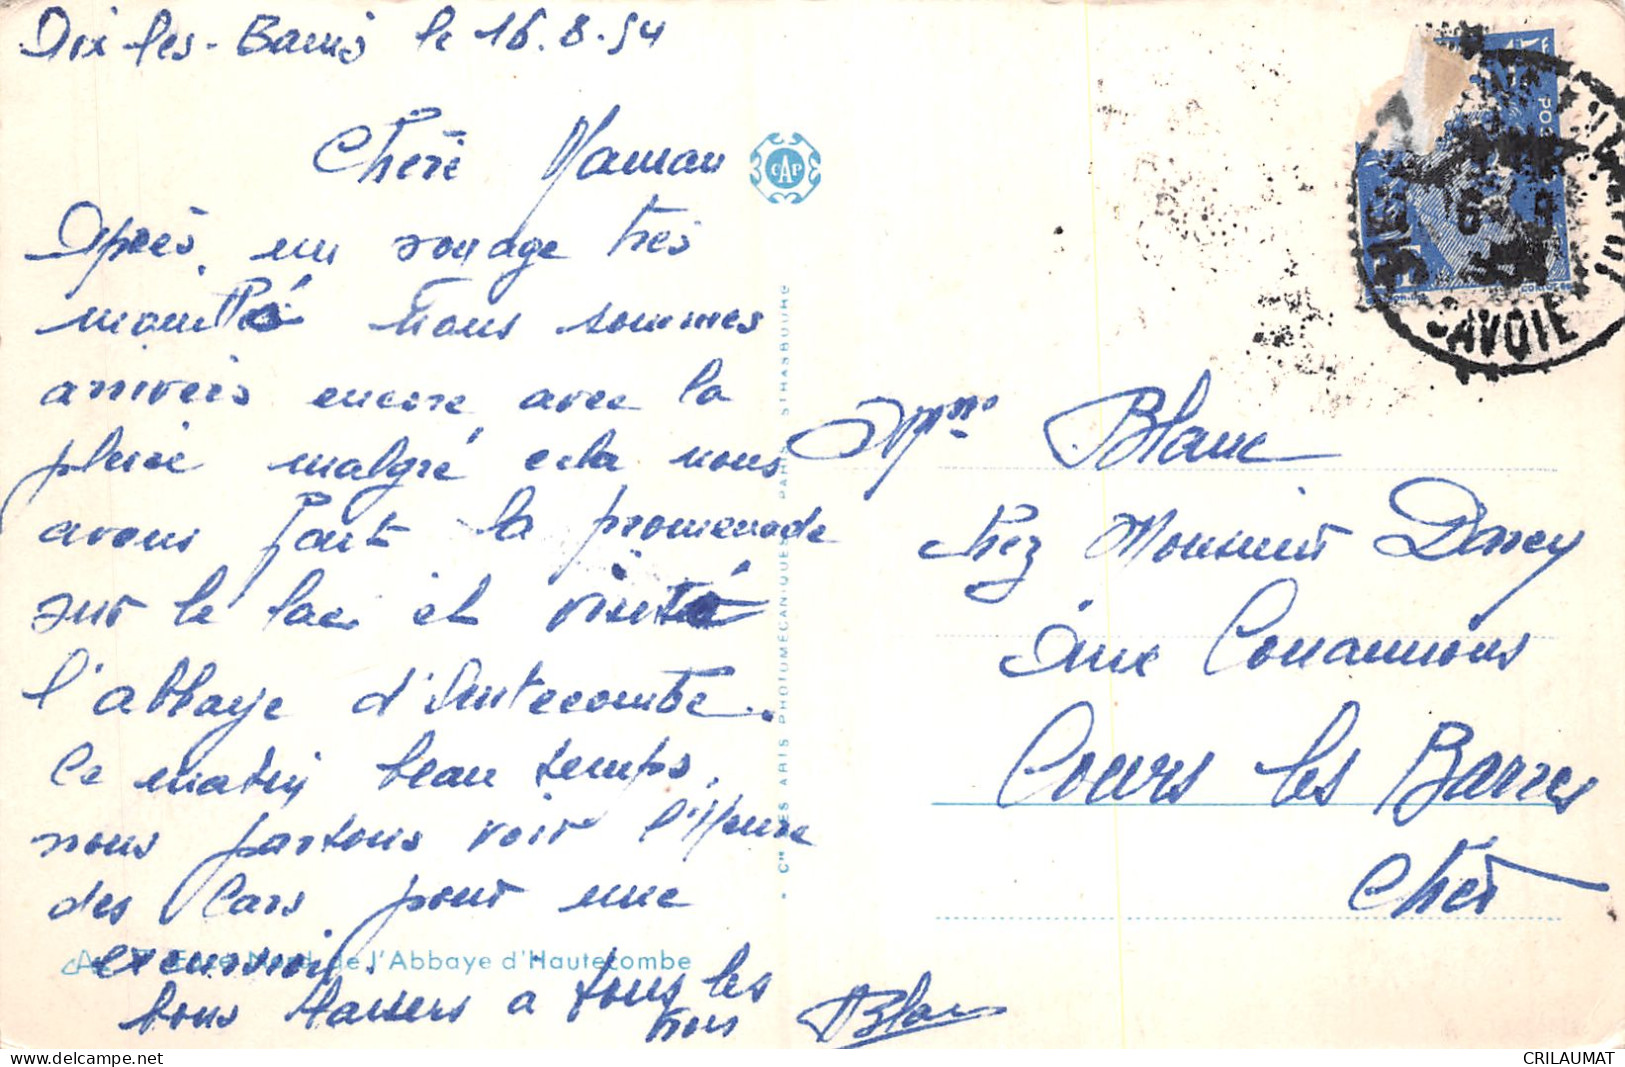 Aix les-Bains le 16.8.54
Cheré Maman
Après un voyage très
mouilé nous sommes
arriveis encore avec la
pluie malgré cela nous
avons fait la promenade
sur le lac et visité
l'abbaye d'Autecombe.
Ce matin beau temps,
nous partons voir l'Heure
des Cars pour une
excursion.
bons baisers a tous les
trois
Blanc
CAP
Cie DES ARTS PHOTOMÉCANIQUES PARIS STRASBOURG
Nord de l'Abbaye d'Hautecombe
Mme Blanc
chez Monsieur Darrey
aux Couannions
Cours les Barres
Cher
SAVOIE
CRILAUMAT